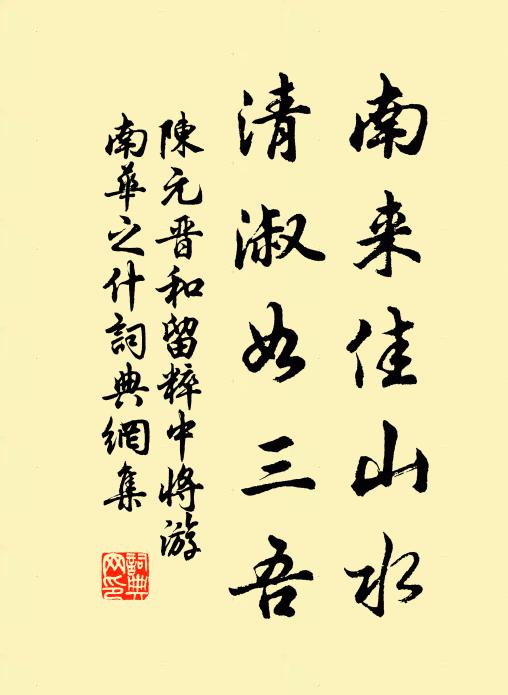 南来佳山水
清淑如三吾
陳元晋和留粹中将游
南華之什詞典網集
詞典网印